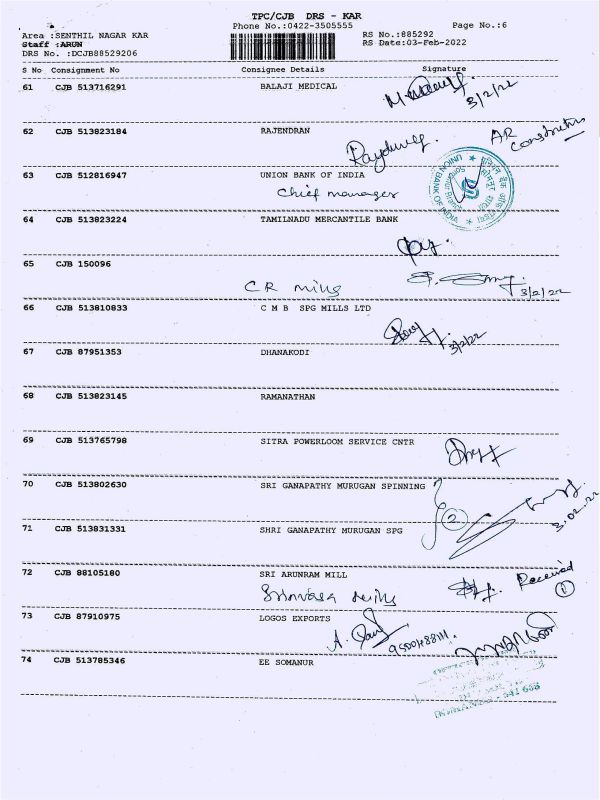 TPC/CJB DRS - KAR
Phone No.:0422-3505555
Page No.:6
Area :SENTHIL NAGAR KAR
RS No.:885292
Staff :ARUN
RS Date:03-Feb-2022
DRS No. :DCJB88529206
S No Consignment No Consignee Details Signature
61 CJB 513716291 BALAJI MEDICAL
3/2/22
62 CJB 513823184 RAJENDRAN
AR
63 CJB 512816947 UNION BANK OF INDIA
Chief manager
UNION BANK OF INDIA
64 CJB 513823224 TAMILNADU MERCANTILE BANK
65 CJB 150096
CR mills
3/2/22
66 CJB 513810833 C M B SPG MILLS LTD
3/2/22
67 CJB 87951353 DHANAKODI
68 CJB 513823145 RAMANATHAN
69 CJB 513765798 SITRA POWERLOOM SERVICE CNTR
70 CJB 513802630 SRI GANAPATHY MURUGAN SPINNING
2
3.02.22
71 CJB 513831331 SHRI GANAPATHY MURUGAN SPG
72 CJB 88105180 SRI ARUNRAM MILL
Received
73 CJB 87910975 LOGOS EXPORTS
74 CJB 513785346 EE SOMANUR